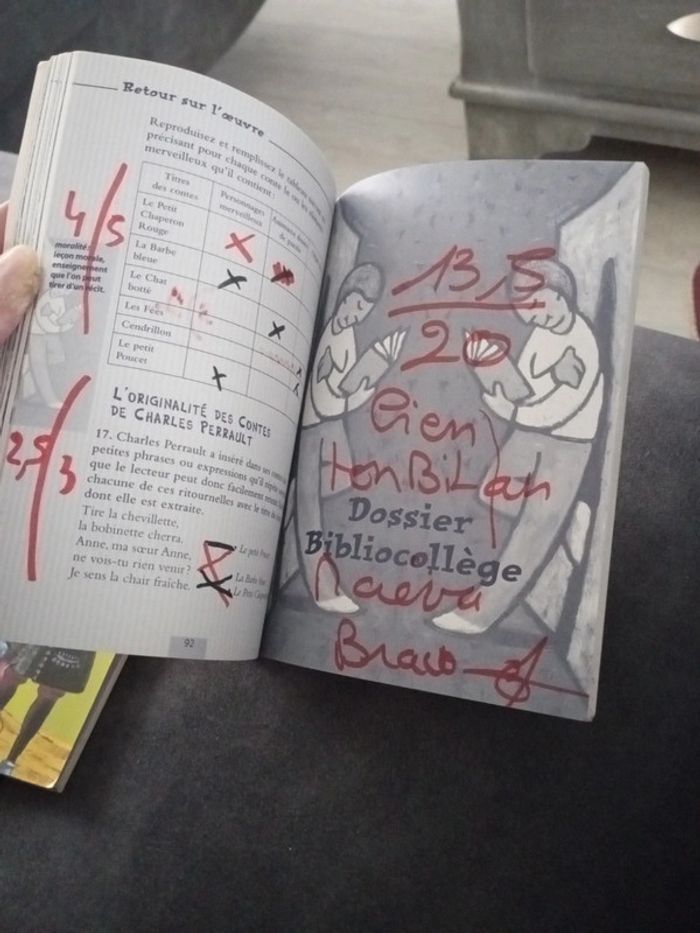 Retour sur l'œuvre
Reproduisez et remplissez le tableau
précisant pour chaque conte le ou les
merveilleux qu'il contient :
Titres
des contes
Personnages
merveilleux
Le Petit
Chaperon
Rouge
La Barbe
bleue
Le Chat
botté
Les Fées
Cendrillon
Le petit
Poucet
4/5
moralité :
leçon morale,
enseignement
que l'on peut
tirer d'un récit.
L'ORIGINALITÉ DES CONTES
DE CHARLES PERRAULT
2,5/3
17. Charles Perrault a inséré dans ses
petites phrases ou expressions qu'il
que le lecteur peut donc facilement
chacune de ces ritournelles avec le titre du
dont elle est extraite.
Tire la chevillette,
la bobinette cherra.
Anne, ma sœur Anne,
ne vois-tu rien venir ?
Je sens la chair fraîche.
Le petit
La Barbe
Le Petit
92
13,5
20
Bien
ton Bilan
Dossier
Bibliocollège
Maeva
Bravo